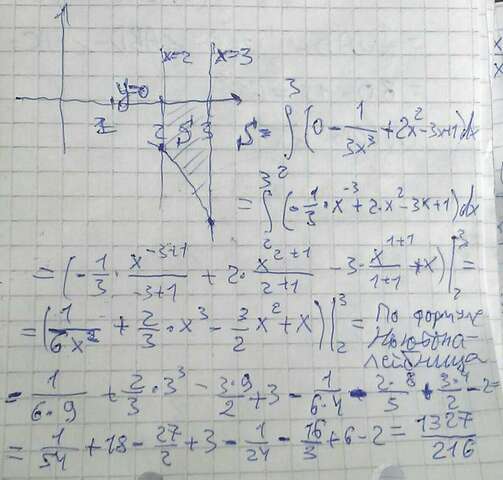 x=2 x=3
y=0
1 2 S 3
S = ∫₂³ (0 - 1/(3x³) + 2x² - 3x + 1) dx
= ∫₂³ (-1/3 · x⁻³ + 2 · x² - 3x + 1) dx
= (-1/3 · x⁻³⁺¹/(-3+1) + 2 · x²⁺¹/(2+1) - 3 · x¹⁺¹/(1+1) + x) |₂³ =
= (1/(6x²) + 2/3 · x³ - 3/2 x² + x) |₂³ = По формуле Ньютона-Лейбница
= 1/(6·9) + 2/3 · 3³ - 3·9/2 + 3 - 1/(6·4) - 2·8/3 + 3·4/2 - 2
= 1/54 + 18 - 27/2 + 3 - 1/24 - 16/3 + 6 - 2 = 1327/216